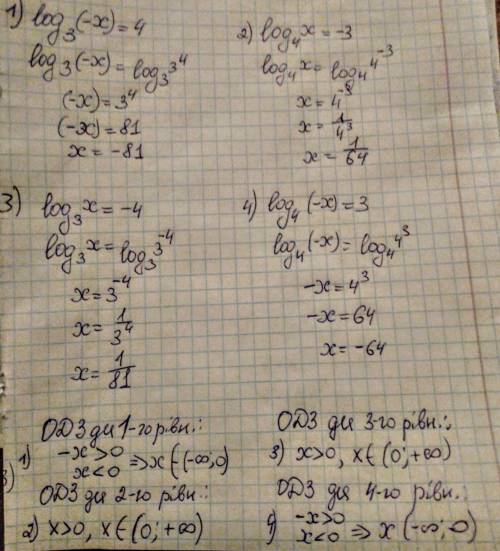 1) log₃(-x) = 4
log₃(-x) = log₃3⁴
(-x) = 3⁴
(-x) = 81
x = -81
2) log₄x = -3
log₄x = log₄4⁻³
x = 4⁻³
x = 1/4³
x = 1/64
3) log₃x = -4
log₃x = log₃3⁻⁴
x = 3⁻⁴
x = 1/3⁴
x = 1/81
4) log₄(-x) = 3
log₄(-x) = log₄4³
-x = 4³
-x = 64
x = -64
ОДЗ для 1-го рівн.:
1) -x > 0
x < 0 ⇒ x ∈ (-∞; 0)
ОДЗ для 2-го рівн.:
2) x > 0, x ∈ (0; +∞)
ОДЗ для 3-го рівн.:
3) x > 0, x ∈ (0; +∞)
ОДЗ для 4-го рівн.:
-x > 0
x < 0 ⇒ x (-∞; 0)